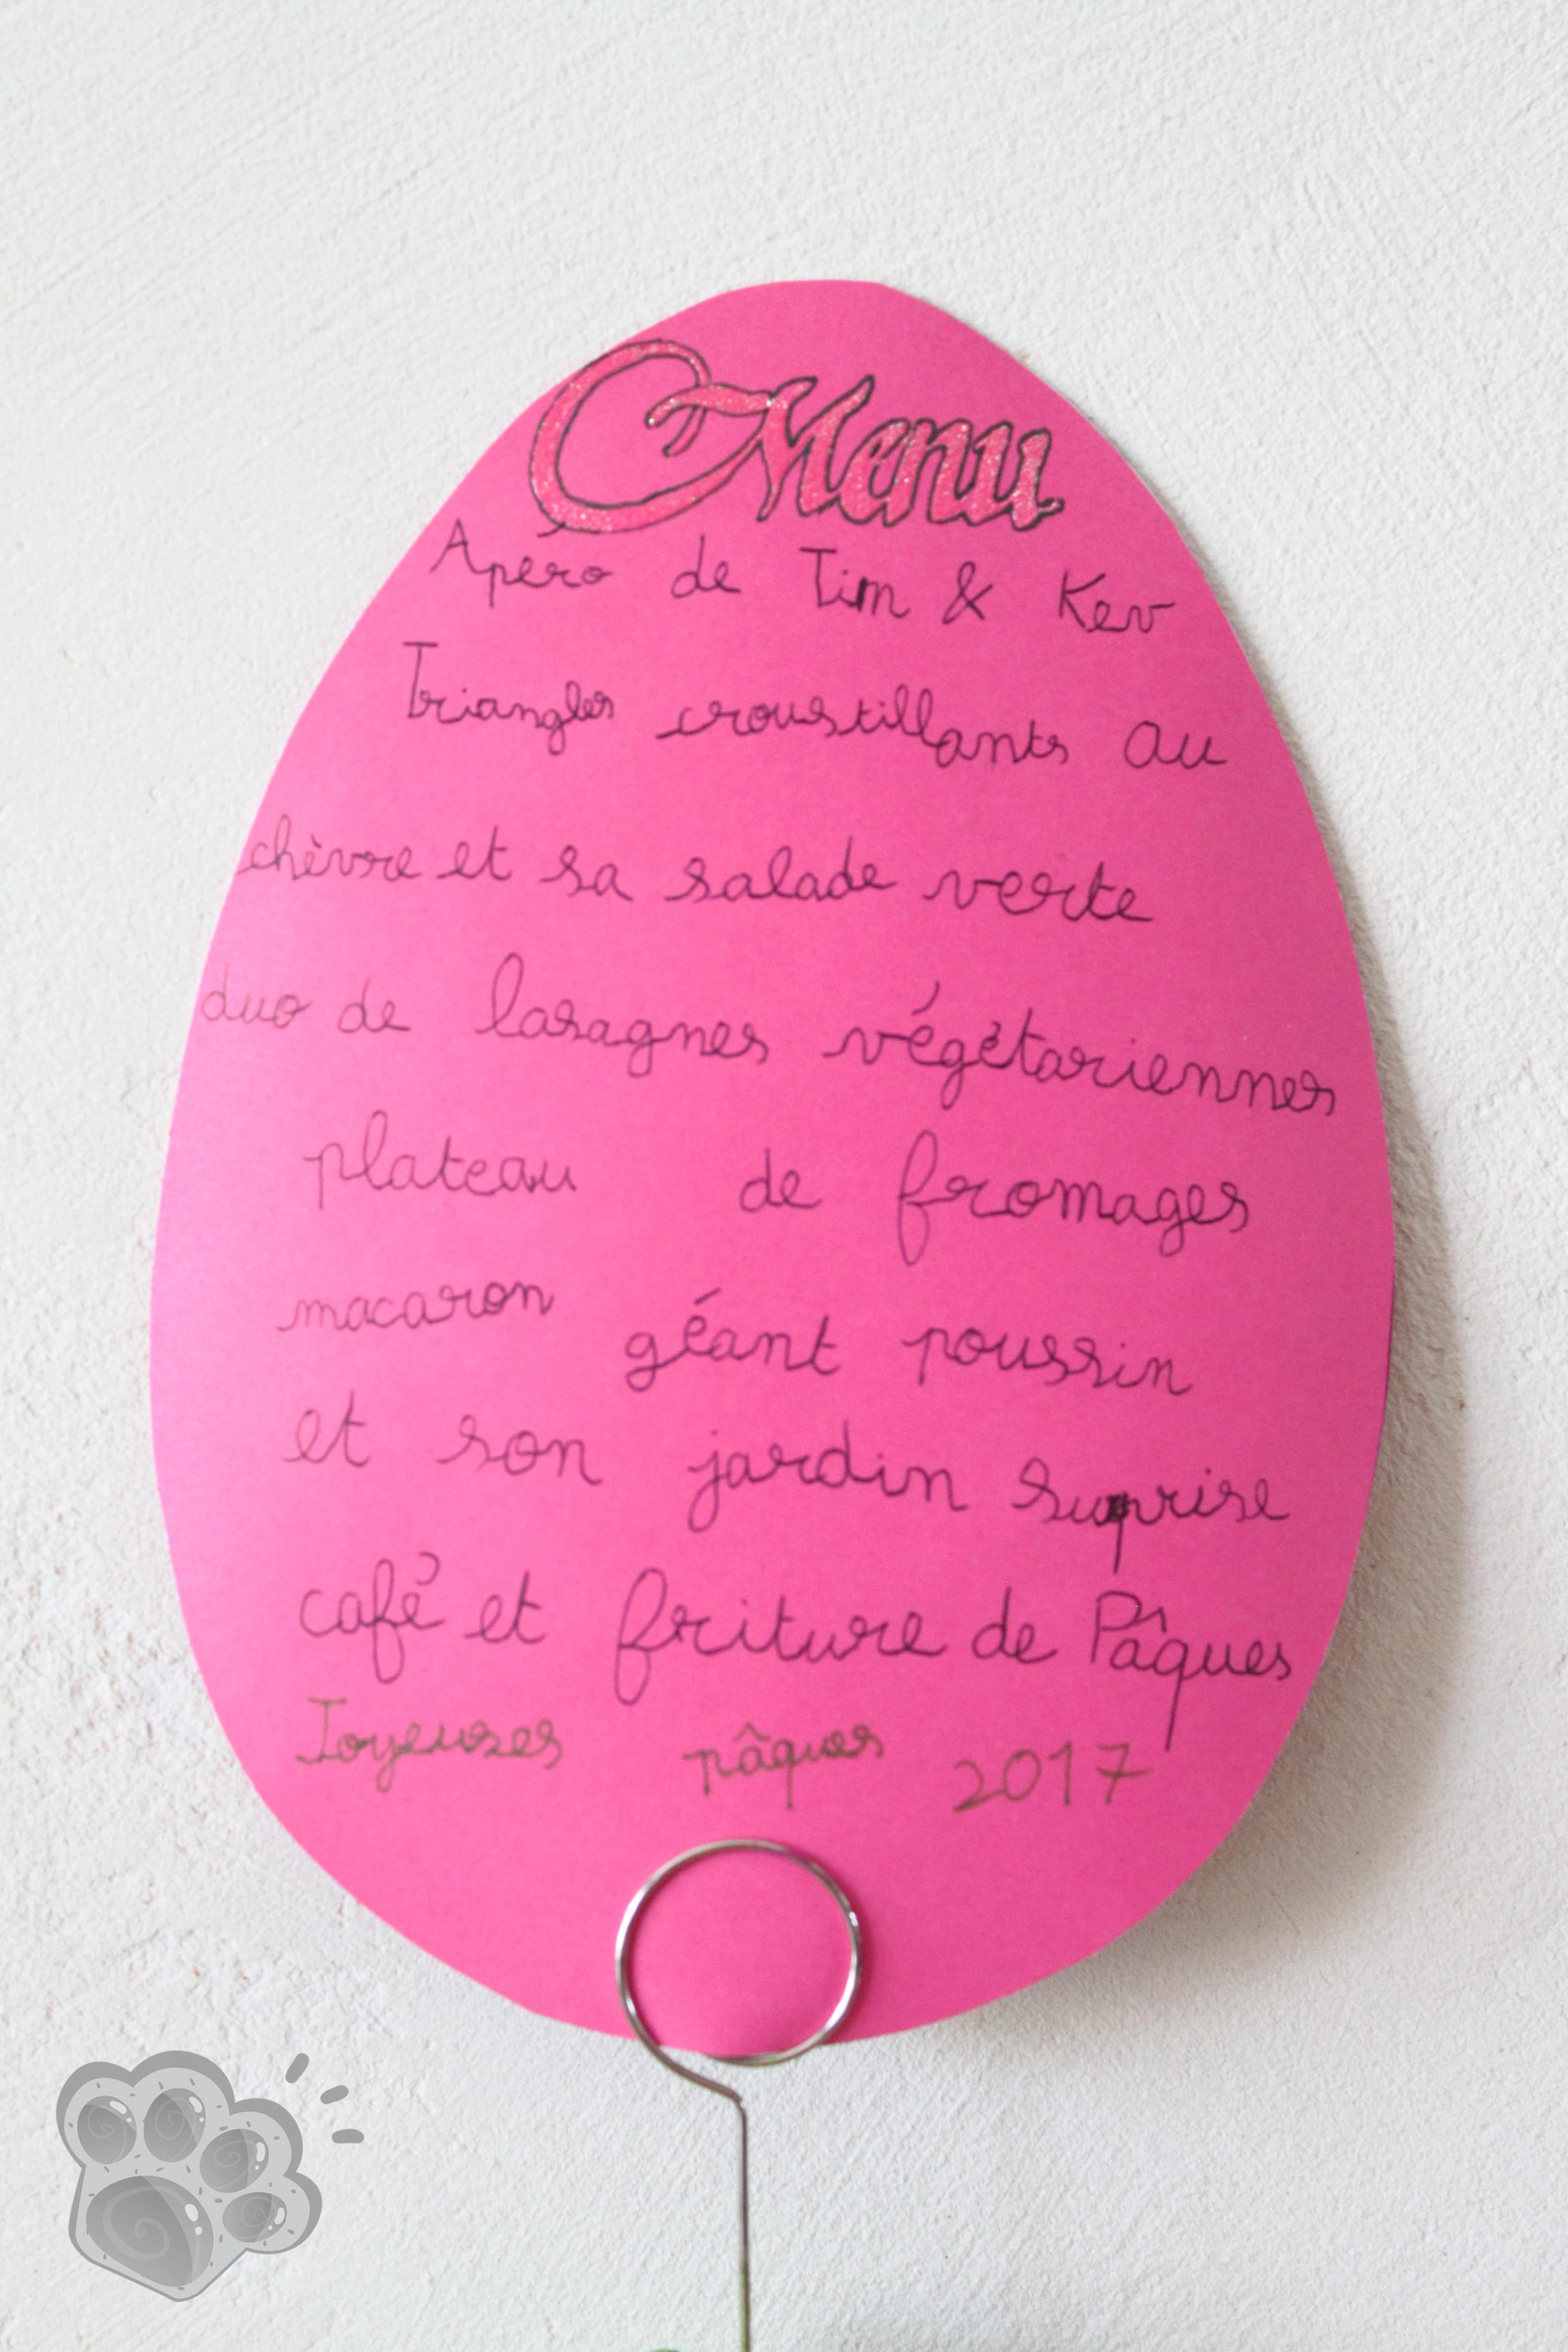 Menu
Apéro de Tim & Kev
Triangles croustillants au
chèvre et sa salade verte
duo de lasagnes végétariennes
plateau de fromages
macaron géant poussin
et son jardin suprise
café et friture de Pâques
Joyeuses pâques 2017